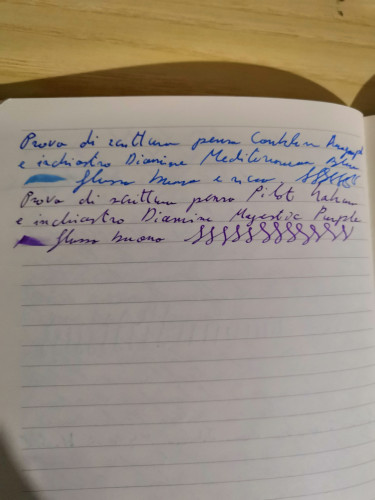 Prova di scrittura penna Conklin
e inchiostro Diamine Mediterranean Blue
flusso buono e ricco
Prova di scrittura penna Pilot
e inchiostro Diamine Majestic Purple
flusso buono